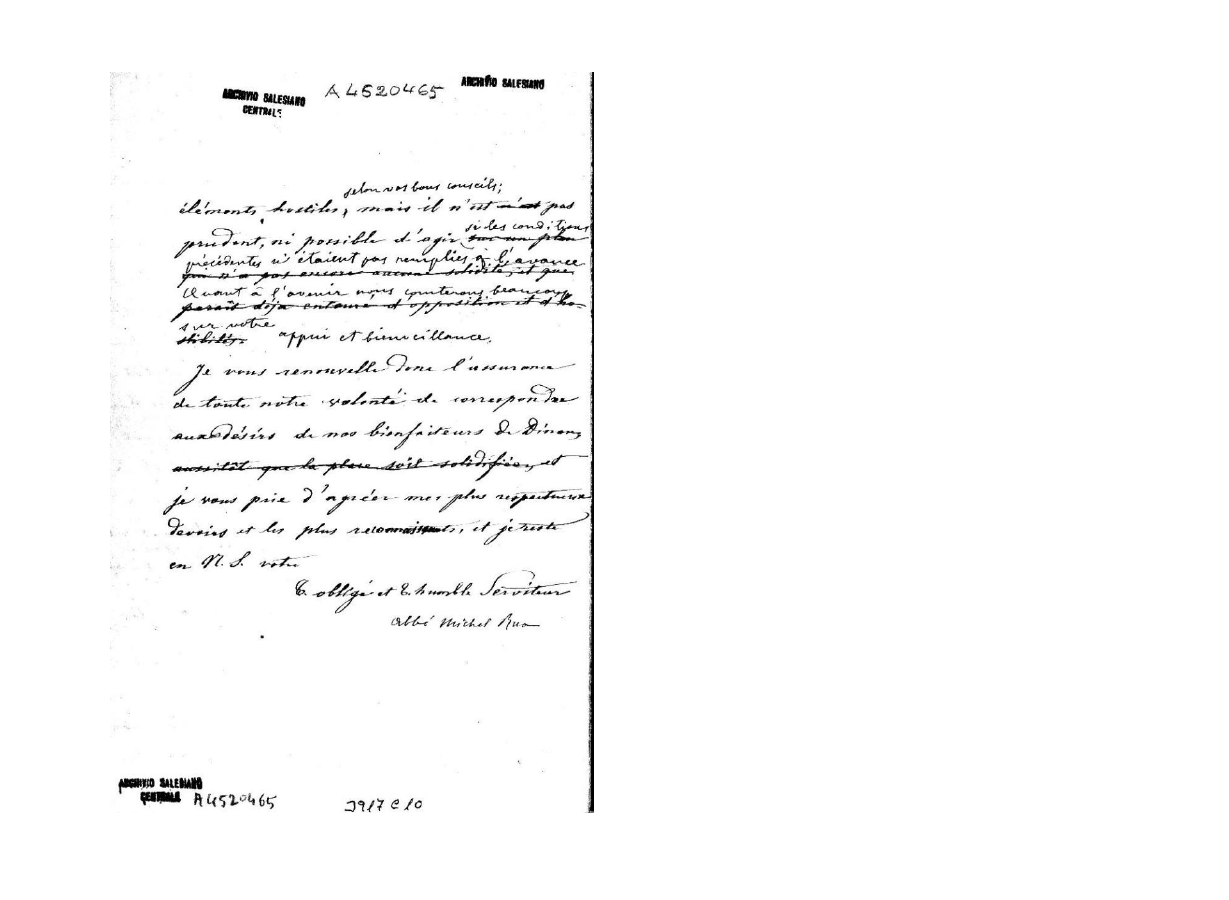 ARCHIVIO SALESIANO
CENTRALE
A4520465
ARCHIVIO SALESIANO
selon vos bons conseils;
éléments hostiles, mais il n'est n'est pas
si les conditions
prudent, ni possible d'agir sur un plan
précédentes n'étaient pas remplies à l'avance
qui n'a pas encore aucune solidité, et que
Quant à l'avenir nous compterons beaucoup
paraît déja entouré d'opposition et d'ho-
sur votre
stilités. appui et bienveillance.
Je vous renouvelle donc l'assurance
de toute notre volonté de correspondre
aux désirs de nos bienfaiteurs de Dinan,
aussitôt que la place soit solidifiée, et
je vous prie d'agréer mes plus respectueux
devoirs et les plus reconnaissants, et je reste
en N. S. votre
T. obligé et T. humble Serviteur
Abbé Michel Rua
ARCHIVIO SALESIANO
CENTRALE A4520465
3917 C 10